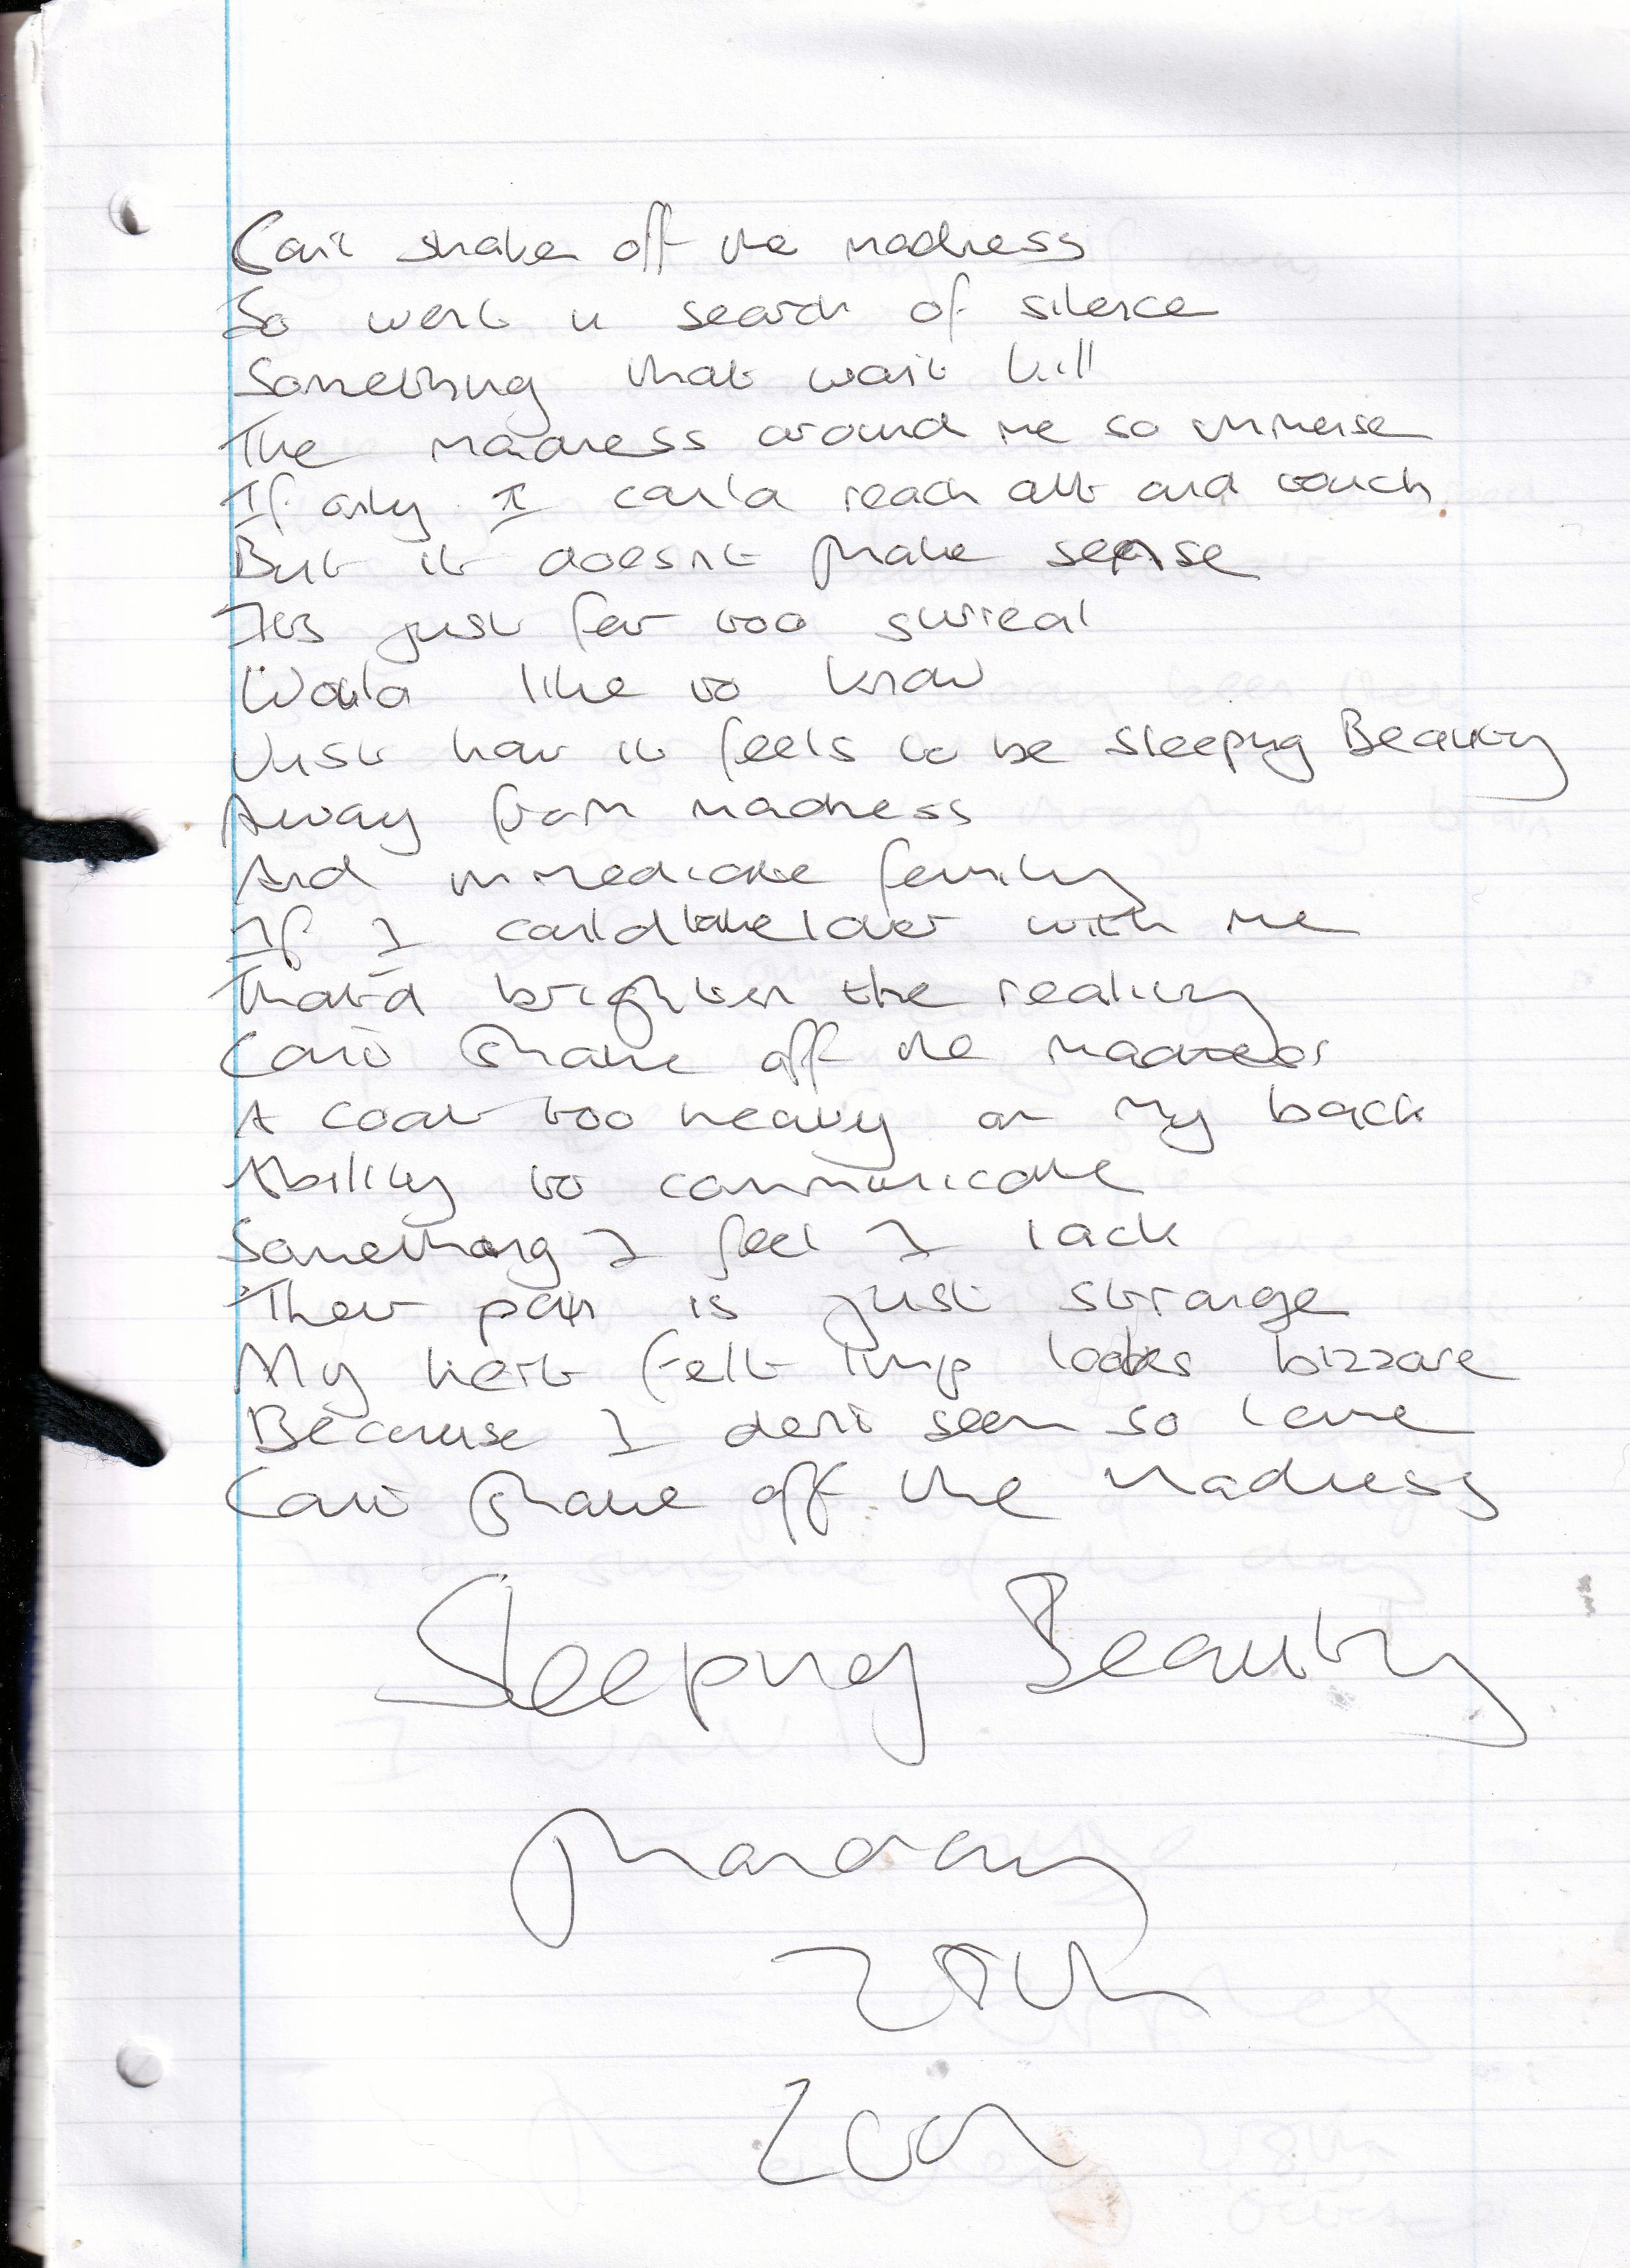 Can't shake off the madness
So went in search of silence
Something that won't kill
The madness around me so immense
If only I could reach out and touch
But it doesn't make sense
Its just far too surreal
Would like to know
Just how it feels to be Sleeping Beauty
Away from madness
And immediate family
If I could take lover with me
That'd brighten the reality
Can't shake off the madness
A coat too heavy on my back
Ability to communicate
Something I feel I lack
Their pain is just strange
My heart felt limp looks bizzare
Because I don't seem so
Can't shake off the madness
Sleeping Beauty